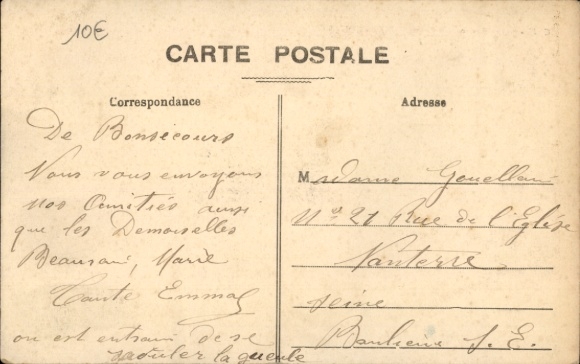 10€
CARTE POSTALE
Correspondance
Adresse
De Bonsecours
Nous vous envoyons
nos Amitiés ainsi
que les Demoiselles
Marie
Tante Emma
on est entrain de se
saouler la gueule
Madame
Nº 21 Rue de l'Eglise
Nanterre
Seine